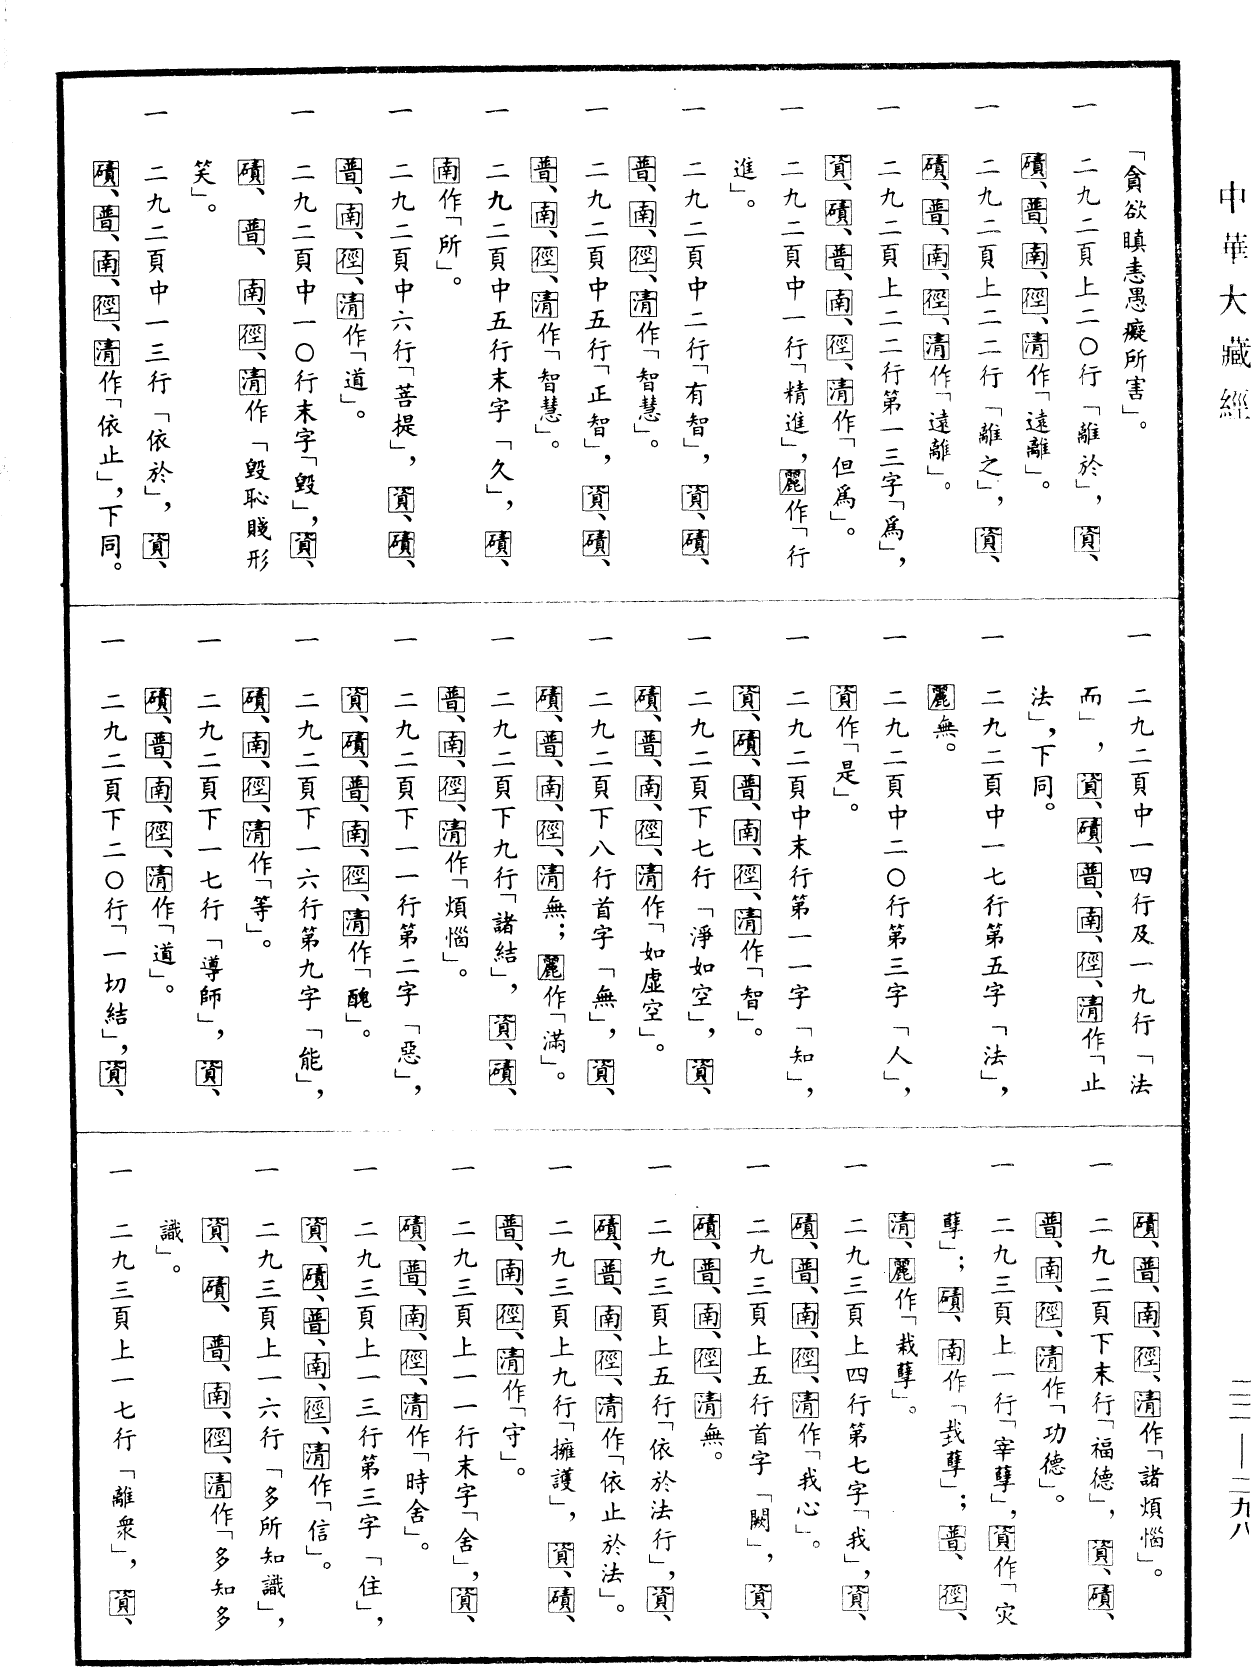 中華大藏經
「貪欲瞋恚愚癡所害」。
一 二九二頁上二〇行「離於」，資、
磧、普、南、徑、清作「遠離」。
一 二九二頁上二二行「離之」，資、
磧、普、南、徑、清作「遠離」。
一 二九二頁上二二行第一三字「爲」，
資、磧、普、南、徑、清作「但爲」。
一 二九二頁中一行「精進」，麗作「行
進」。
一 二九二頁中二行「有智」，資、磧、
普、南、徑、清作「智慧」。
一 二九二頁中五行「正智」，資、磧、
普、南、徑、清作「智慧」。
一 二九二頁中五行末字「久」，磧、
南作「所」。
一 二九二頁中六行「菩提」，資、磧、
普、南、徑、清作「道」。
一 二九二頁中一〇行末字「毀」，資、
磧、普、南、徑、清作「毀恥賤形
笑」。
一 二九二頁中一三行「依於」，資、
磧、普、南、徑、清作「依止」，下同。
一 二九二頁中一四行及一九行「法
而」，資、磧、普、南、徑、清作「止
法」，下同。
一 二九二頁中一七行第五字「法」，
麗無。
一 二九二頁中二〇行第三字「人」，
資作「是」。
一 二九二頁中末行第一一字「知」，
資、磧、普、南、徑、清作「智」。
一 二九二頁下七行「淨如空」，資、
磧、普、南、徑、清作「如虛空」。
一 二九二頁下八行首字「無」，資、
磧、普、南、徑、清無；麗作「滿」。
一 二九二頁下九行「諸結」，資、磧、
普、南、徑、清作「煩惱」。
一 二九二頁下一一行第二字「惡」，
資、磧、普、南、徑、清作「醜」。
一 二九二頁下一六行第九字「能」，
磧、南、徑、清作「等」。
一 二九二頁下一七行「導師」，資、
磧、普、南、徑、清作「道」。
一 二九二頁下二〇行「一切結」，資、
磧、普、南、徑、清作「諸煩惱」。
一 二九二頁下末行「福德」，資、磧、
普、南、徑、清作「功德」。
一 二九三頁上一行「宰孽」，資作「灾
孽」；磧、南作「㦲孽」；普、徑、
清、麗作「栽孽」。
一 二九三頁上四行第七字「我」，資、
磧、普、南、徑、清作「我心」。
一 二九三頁上五行首字「闕」，資、
磧、普、南、徑、清無。
一 二九三頁上五行「依於法行」，資、
磧、普、南、徑、清作「依止於法」。
一 二九三頁上九行「擁護」，資、磧、
普、南、徑、清作「守」。
一 二九三頁上一一行末字「舍」，資、
磧、普、南、徑、清作「時舍」。
一 二九三頁上一三行第三字「住」，
資、磧、普、南、徑、清作「信」。
一 二九三頁上一六行「多所知識」，
資、磧、普、南、徑、清作「多知多
識」。
一 二九三頁上一七行「離衆」，資、
二二—二九八